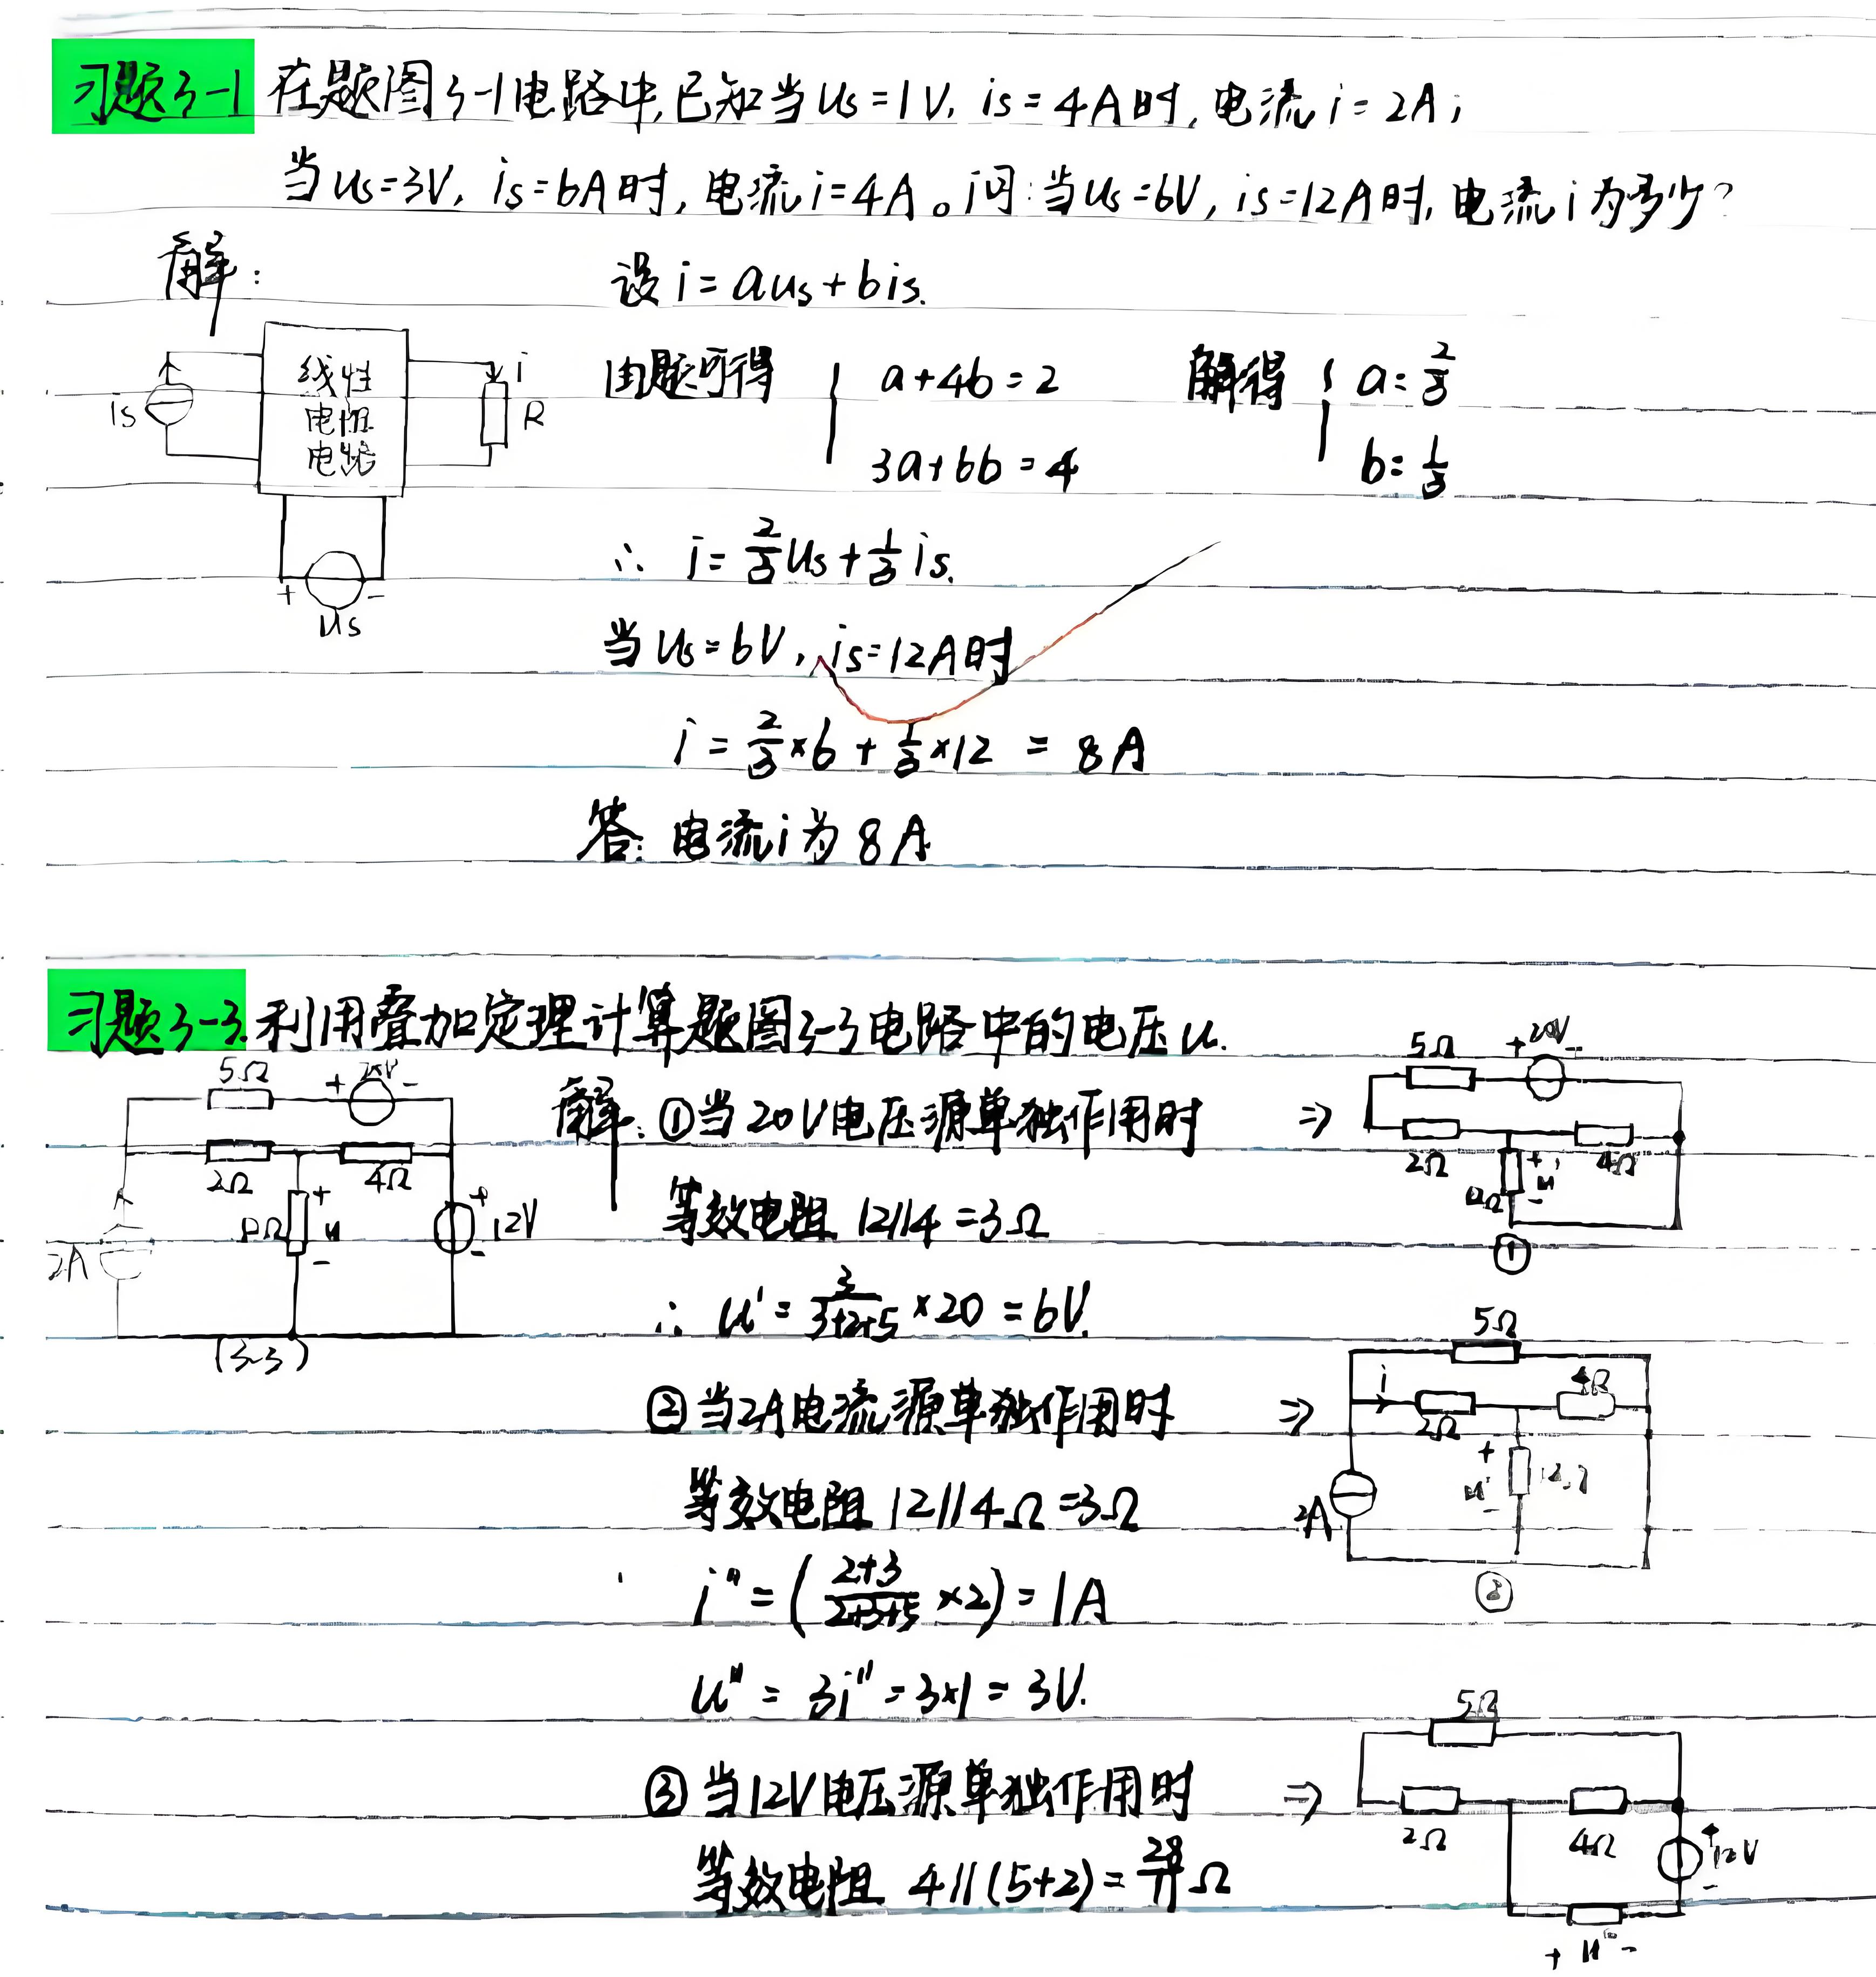 习题3-1 在题图3-1电路中,已知当us=1V, is=4A时,电流i=2A;
当us=3V, is=6A时,电流i=4A。问:当us=6V, is=12A时,电流i为多少?
解:
设i=aus+bis.
is
线性
电阻
电路
i
R
+ -
us
由题可得 { a+4b=2
3a+6b=4
解得 { a=2/3
b=1/3
∴ i=2/3us+1/3is.
当us=6V, is=12A时
i=2/3×6+1/3×12=8A
答:电流i为8A
习题3-3.利用叠加定理计算题图3-3电路中的电压u.
5Ω + 20V -
2Ω 4Ω
2A 12Ω + u - + 12V -
(3-3)
解:①当20V电压源单独作用时 ⇒
等效电阻 12//4=3Ω
∴ u'=3/(3+2+5)×20=6V.
5Ω + 20V -
2Ω 4Ω
12Ω + u' -
①
②当2A电流源单独作用时 ⇒
等效电阻 12//4Ω=3Ω
i"=((2+3)/(2+3+5)×2)=1A
u"=3i"=3×1=3V.
5Ω
i 2Ω 4Ω
2A + u" -
②
③当12V电压源单独作用时 ⇒
等效电阻 4//(5+2)=28/11Ω
5Ω
2Ω 4Ω
+ 12V -
+ u -